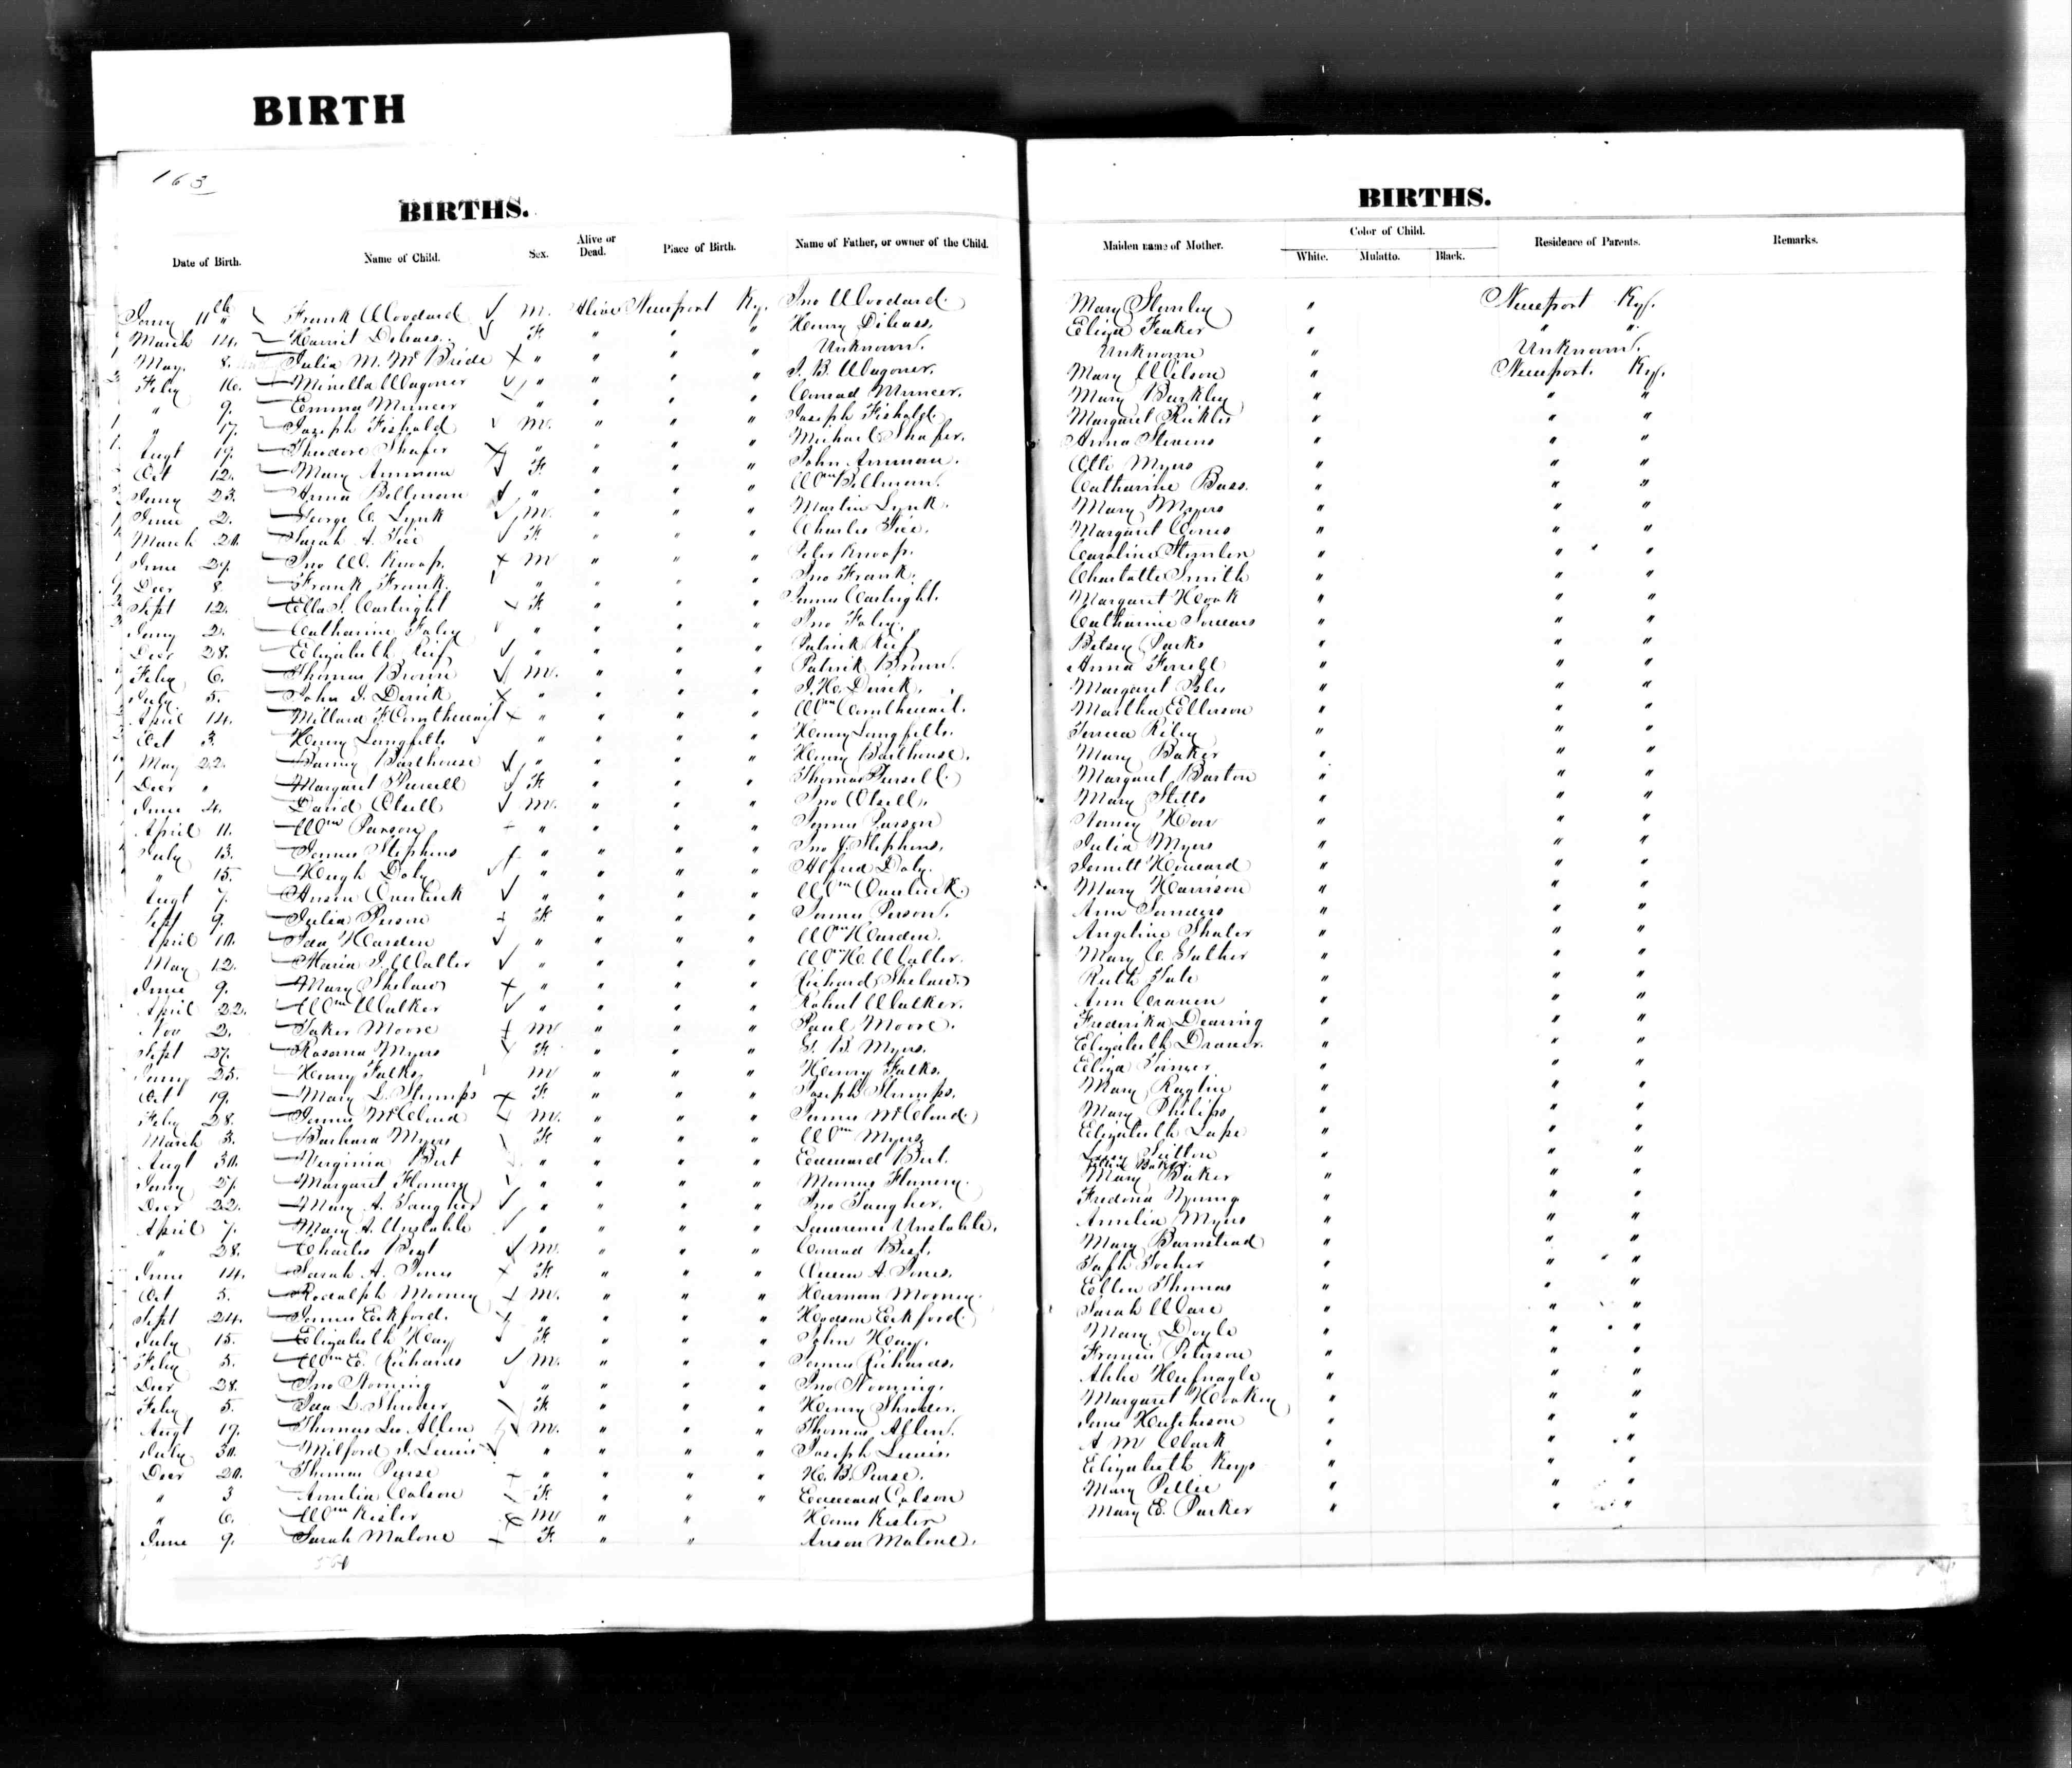 BIRTH
163
BIRTHS.
Date of Birth. Name of Child. Sex. Alive or Dead. Place of Birth. Name of Father, or owner of the Child.
Jany 11th Frank Woodard M. Alive Newport Ky. Jno Woodard.
March 14. Harriet F " " " Henry
May. 8. Julia M. McBride " " " " Unknown.
Feby 16. Minella Wagoner " " " " J. B. Wagoner.
" 9. Emma Muncer " " " " Conrad Muncer.
" 17. Joseph Fishald M. " " " Joseph Fishald
Augt 19. Theodore Shafer " " " " Michael Shafer.
Oct 12. Mary Ammon F " " " John Ammon.
Jany 23. Anna Billman " " " " Wm Billman.
June 2. George C. Lynk M. " " " Martin Lynk.
March 20. Sarah A. Tice F " " " Charles Tice.
June 27. Jno W. Knoap. M " " " Peter Knoap.
Decr 8. Frank Frank. " " " " Jno Frank.
Sept 12. Ella J. Cartright F " " " James Cartright.
Jany 2. Catharine Foley " " " " Jno Foley.
Decr 28. Elizabeth Reif " " " " Patrick Reif
Feby 6. Thomas Brown M. " " " Patrick Brown.
July 5. John J. Derick " " " " J. H. Derick.
April 14. Millard F. Cornthwait " " " " Wm Cornthwait.
Oct 3. Henry Langfelts " " " " Henry Langfelts.
May 22. Barthouse " " " " Henry Barthouse.
Decr " Margaret Pursell F " " " Thomas Pursell.
June 4. David Otsell M. " " " Jno Otsell.
April 11. Wm Parson " " " " James Parson
July 13. James Stephens " " " " Jno J. Stephens.
" 15. Hugh Doly " " " " Alfred Doly.
Augt 7. Anson Overbeck " " " " Wm Overbeck.
Sept 9. Julia Person F " " " James Person.
April 10. Ida Harden " " " " Wm Harden.
May 12. Maria J. Waller " " " " Wm H. Waller.
June 9. Mary Shelaw " " " " Richard Shelaw.
April 22. Wm Walker " " " " Robert Walker.
Nov 2. Taker Moore M " " " Paul Moore.
Sept 27. Rosanna Myers F " " " G. B. Myers.
Jany 25. Henry Falks M " " " Henry Falks.
Oct 19. Mary L. Stumps F. " " " Joseph Stumps.
Feby 28. James McCloud M. " " " James McCloud.
March 3. Barbara Myers F " " " Wm Myers
Augt 30. Virginia Bert " " " " Edward Bert.
Jany 27. Margaret Flomery " " " "
Decr 22. Mary A. Taugher " " " " Jno Taugher.
April 7. Mary A. Unstable " " " " Lawrence Unstable.
" 28. Charles Best M. " " " Conrad Best.
June 14. Sarah A. Jones F. " " " Owen A. Jones.
Oct 5. Rodalph Mooney M. " " " Herman Mooney.
Sept 24. James Eckford. " " " " Hodson Eckford.
July 15. Elizabeth Hay F " " " John Hay.
Feby 5. Wm E. Richards M. " " " James Richards.
Decr 28. Jno Stonning " " " " Jno Stonning.
Feby 5. Ida L. Shroder F " " " Henry Shroder.
Augt 19. Thomas Leo Allen M. " " " Thomas Allen.
July 30. Milford J. Lewis " " " " Joseph Lewis.
Decr 20. Thomas Purse " " " " H. B. Purse.
" 3 Amelia Colson F. " " " Edward Colson
" 6. Wm Kister M " " Kister
June 9. Sarah Malone F. " " Anson Malone.
BIRTHS.
Maiden name of Mother. Color of Child. White. Mulatto. Black. Residence of Parents. Remarks.
Mary Stanley " Newport Ky.
Eliza Feaker " " "
Unknown " Unknown.
Mary Wilson " Newport. Ky.
Mary Barkley " " "
Margaret Rickles " " "
Anna Stevens " " "
Otti Myers " " "
Catharine Bass. " " "
Mary Myers " " "
Margaret " " "
Caroline " " "
Charlotte Smith " " "
Margaret Hook " " "
Catharine " " "
Betsey Parks " " "
Anna Ferrell " " "
Margaret " " "
Martha Ellerson " " "
Riley " " "
Mary Baker " " "
Margaret Barton " " "
Mary Stills " " "
Nancy " " "
Julia Myers " " "
Howard " " "
Mary Harrison " " "
Ann Sanders " " "
Angeline Shaler " " "
Mary C. " " "
Ruth Tate " " "
Ann Craven " " "
Frederika Dearing " " "
Elizabeth " " "
Eliza " " "
Mary Raglin " " "
Mary Philips " " "
Elizabeth Lape " " "
Lucy Sutton " " "
Mary Baker " " "
Fredona " " "
Amelia Myers " " "
Mary Barnstead " " "
" " "
Ellen Thomas " " "
Sarah Ware " " "
Mary Doyle " " "
Francis Peterson " " "
Hufnagle " " "
Margaret Hooker " " "
Jane Hutcheson " " "
A M Clark " " "
Elizabeth Keys " " "
Mary Pellie " " "
Mary E. Parker " " "